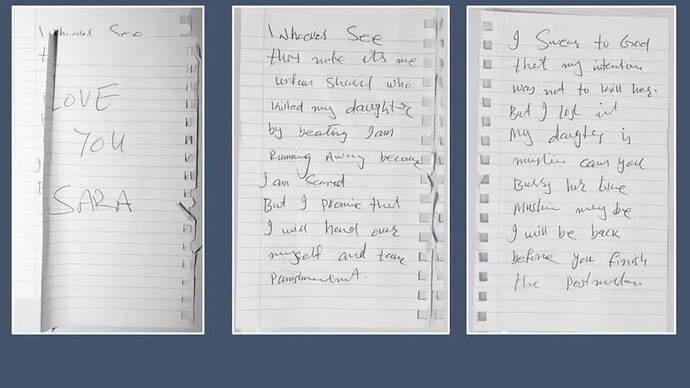 Whoever See
LOVE
YOU
SARA
Whoever See
this note its me
urfan sharif who
killed my daughter
by beating I am
Running Away because
I am Scared
But I promise that
I will hand over
myself and take
Punishment.
I Swear to God
that my intention
was not to kill her.
But I lost it
My daughter is
muslim can you
Bury her like
Muslim may be
I will be back
before you finish
the postmortem